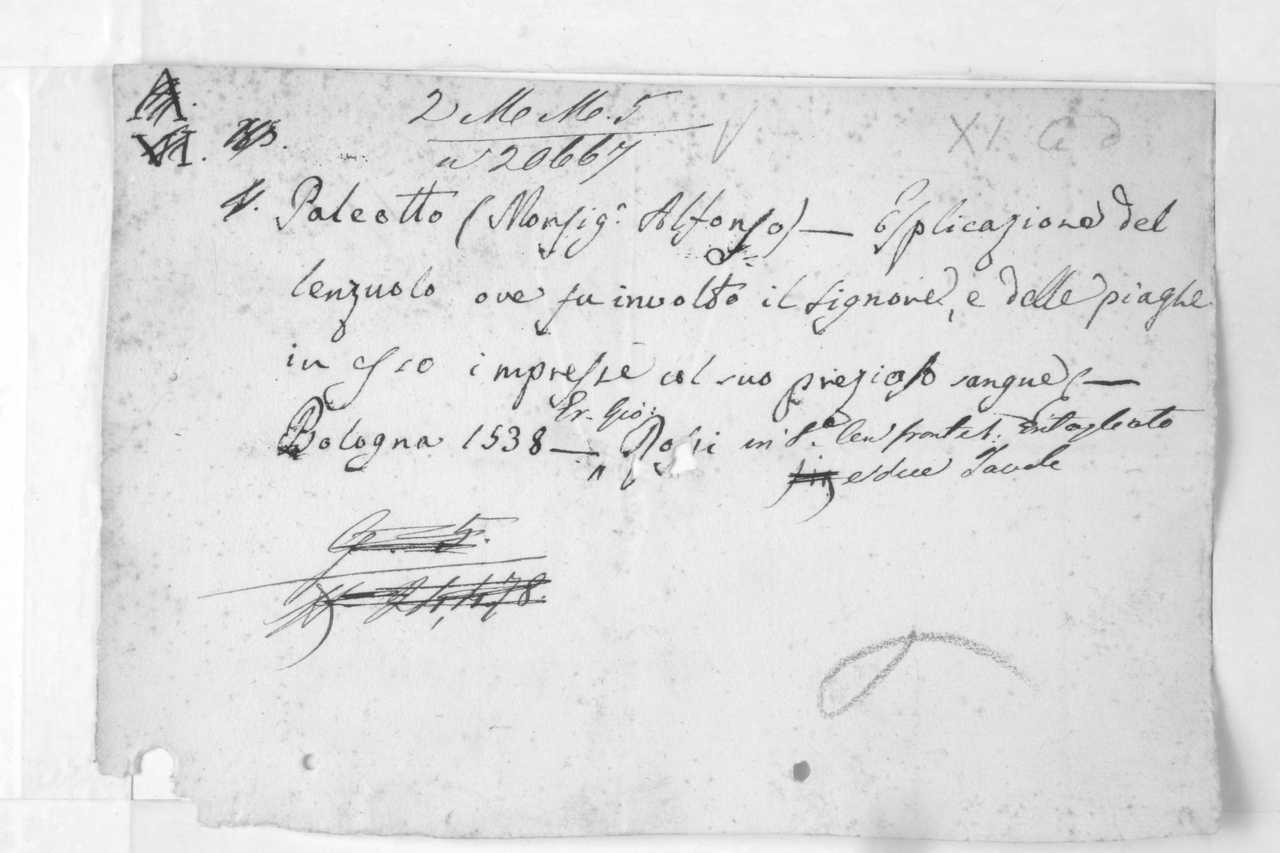 2 Me Me. 5 XI. C d
n 20667
V. Paleotto (Monsig.r Alfonso) — Esplicazione del
lenzuolo ove fu involto il Signore, e delle piaghe
in esso impresse col suo prezioso sangue —
Er. Gio:
Bologna 1538 — Rossi in 4.o con frontes. intagliato
e due Tavole